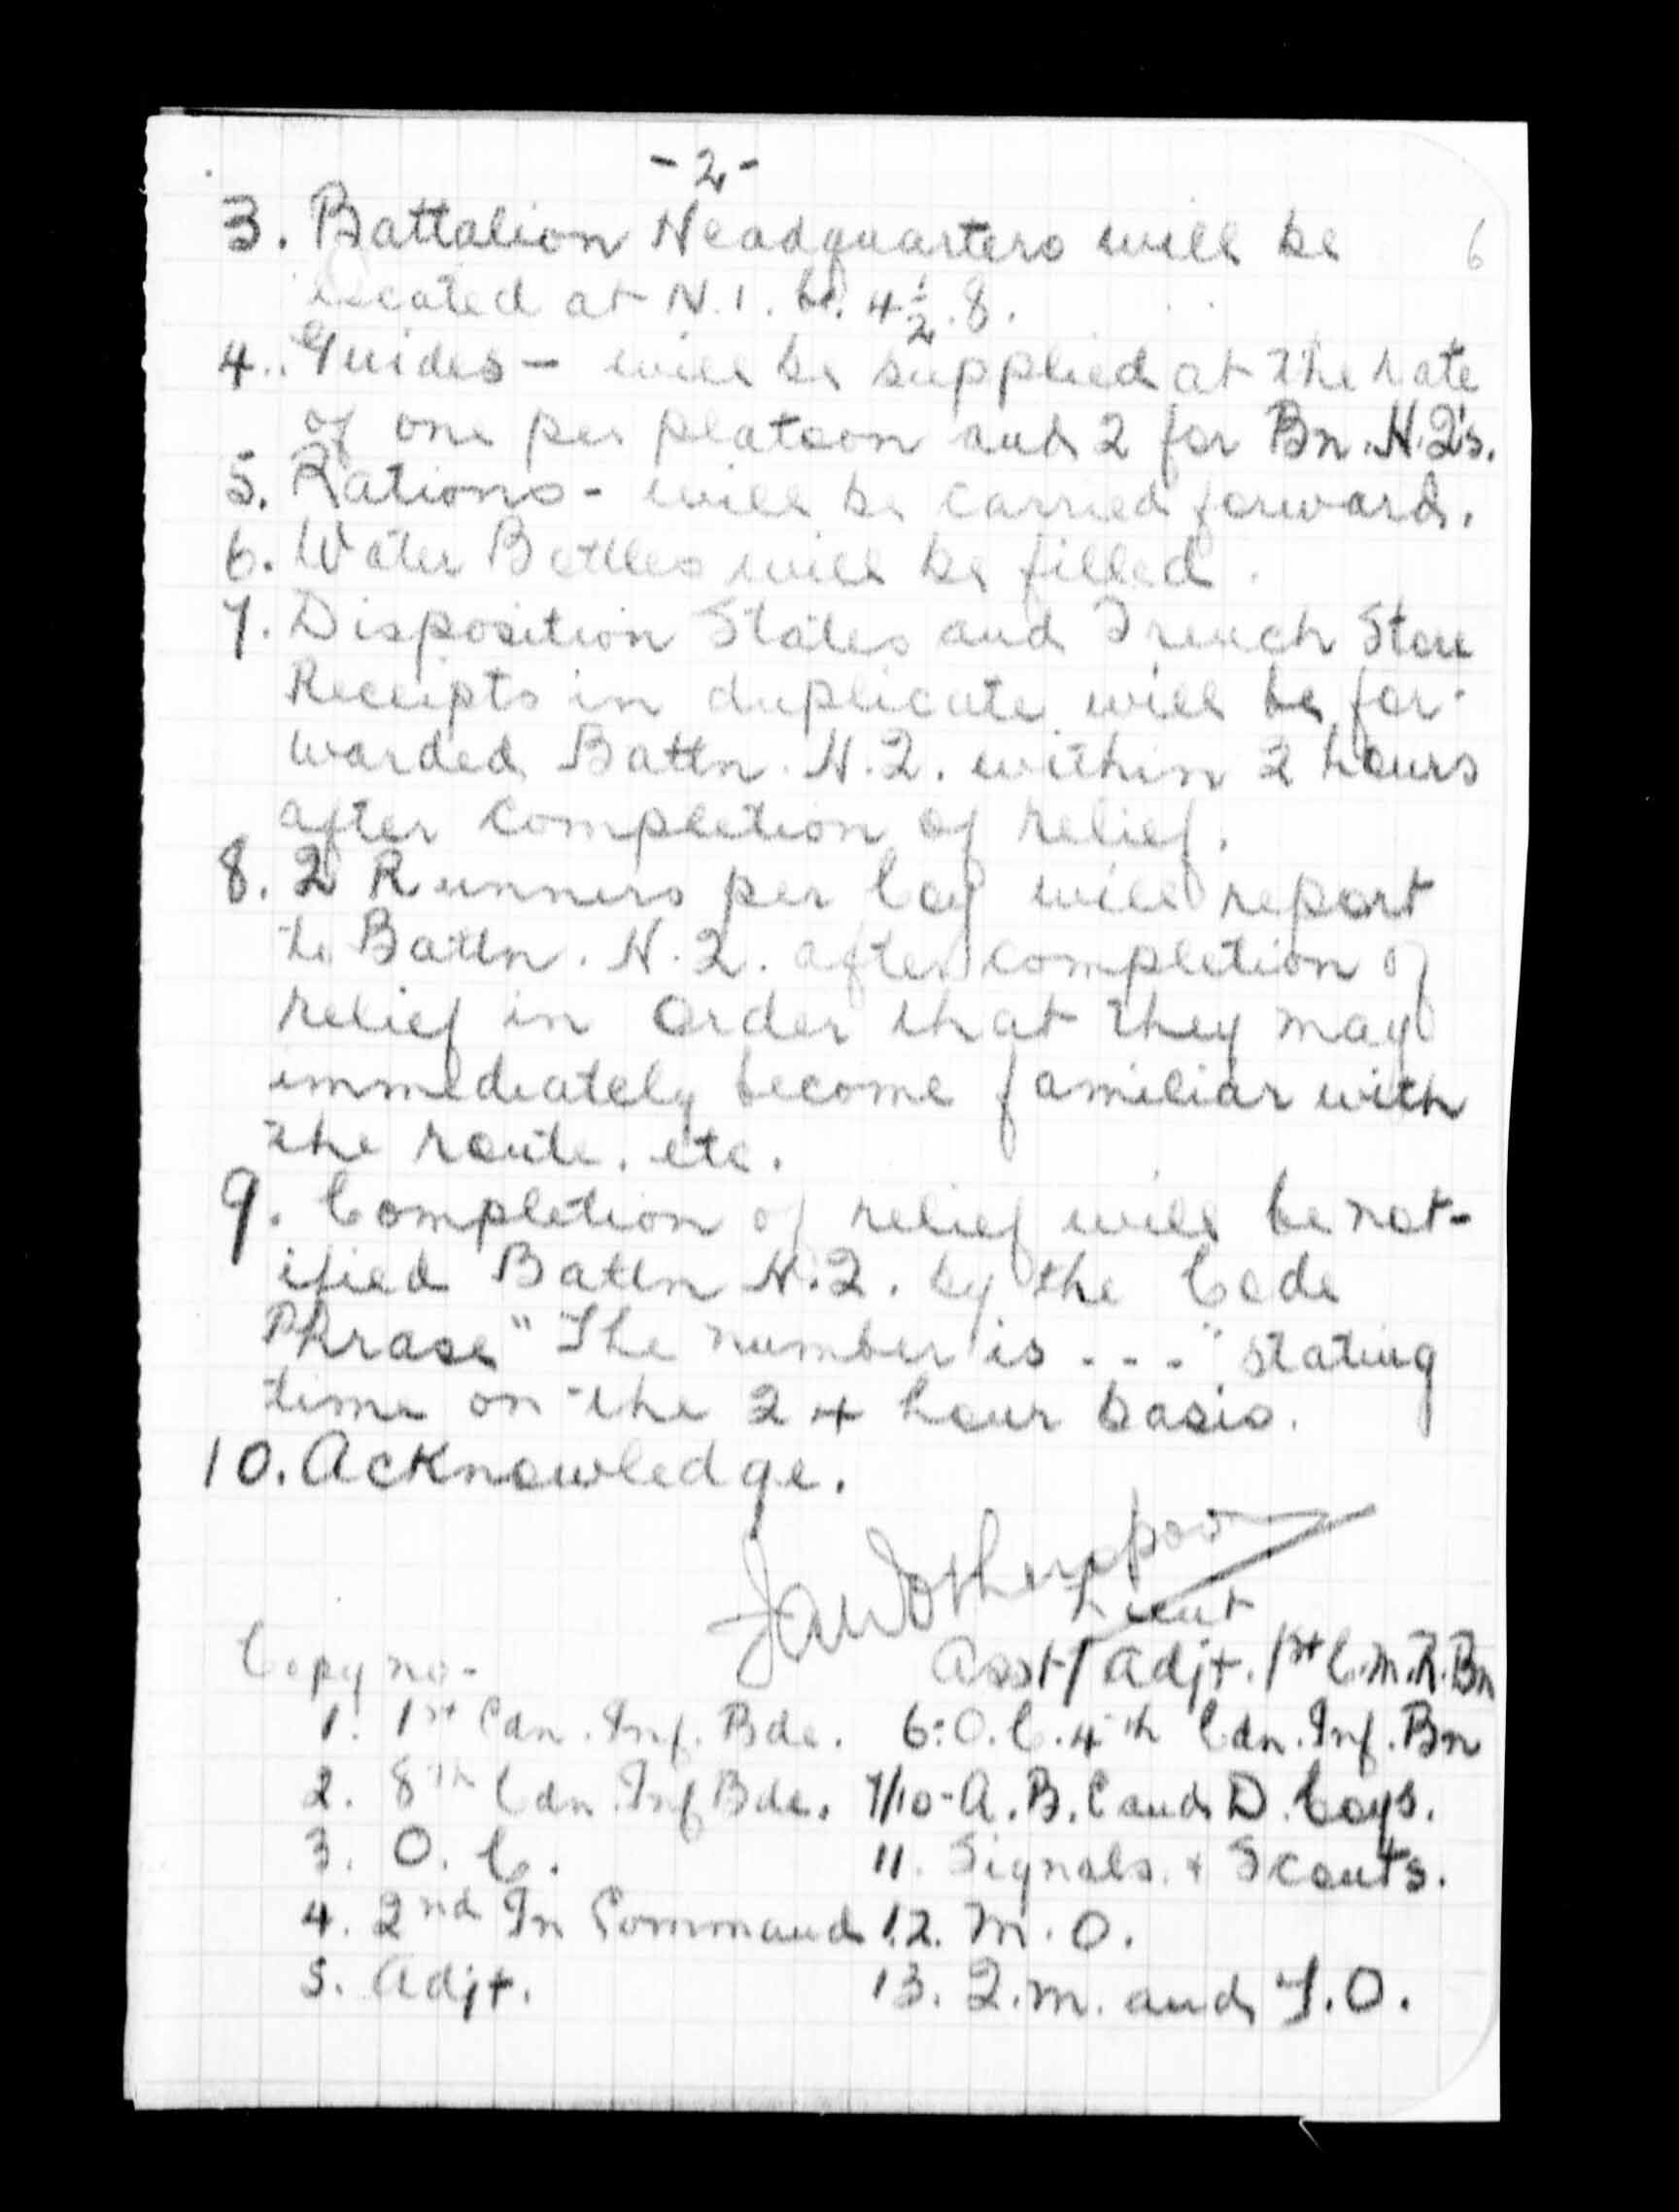 - 2 -
6
3. Battalion Headquarters will be
located at N.1. b. 4½.8.
4. Guides - will be supplied at the rate
of one per platoon and 2 for Bn. H.Q's.
5. Rations - will be carried forward.
6. Water Bottles will be filled.
7. Disposition States and Trench Store
Receipts in duplicate will be for-
warded Battn. H.Q. within 2 hours
after completion of relief.
8. 2 Runners per Coy will report
to Battn. H.Q. after completion of
relief in order that they may
immediately become familiar with
the route. etc.
9. Completion of relief will be not-
ified Battn H.Q. by the Code
Phrase "The number is - - -" stating
time on the 24 hour basis.
10. Acknowledge.
Lieut
Asst/Adjt. 1st C.M.R. Bn
Copy no-
1. 1st Cdn. Inf. Bde. 6. O.C. 4th Cdn. Inf. Bn
2. 8th Cdn. Inf Bde. 7/10 - A. B. C and D. Coys.
3. O. C. 11. Signals. & Scouts.
4. 2nd In Command 12. M. O.
5. Adjt. 13. Q.M. and T.O.